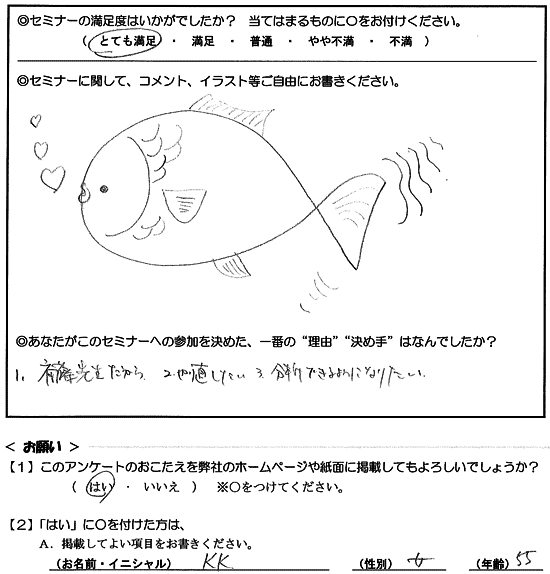 ◎セミナーの満足度はいかがでしたか？ 当てはまるものに〇をお付けください。
（ とても満足 ・ 満足 ・ 普通 ・ やや不満 ・ 不満 ）
◎セミナーに関して、コメント、イラスト等ご自由にお書きください。
◎あなたがこのセミナーへの参加を決めた、一番の“理由”“決め手”はなんでしたか？
1. 先生だから、2.や直したい 3.分析できるようになりたい。
＜ お願い ＞
【１】このアンケートのおこたえを弊社のホームページや紙面に掲載してもよろしいでしょうか？
（ はい ・ いいえ ） ※〇をつけてください。
【２】「はい」に〇を付けた方は、
Ａ．掲載してよい項目をお書きください。
（お名前・イニシャル） KK （性別） 女 （年齢） 55